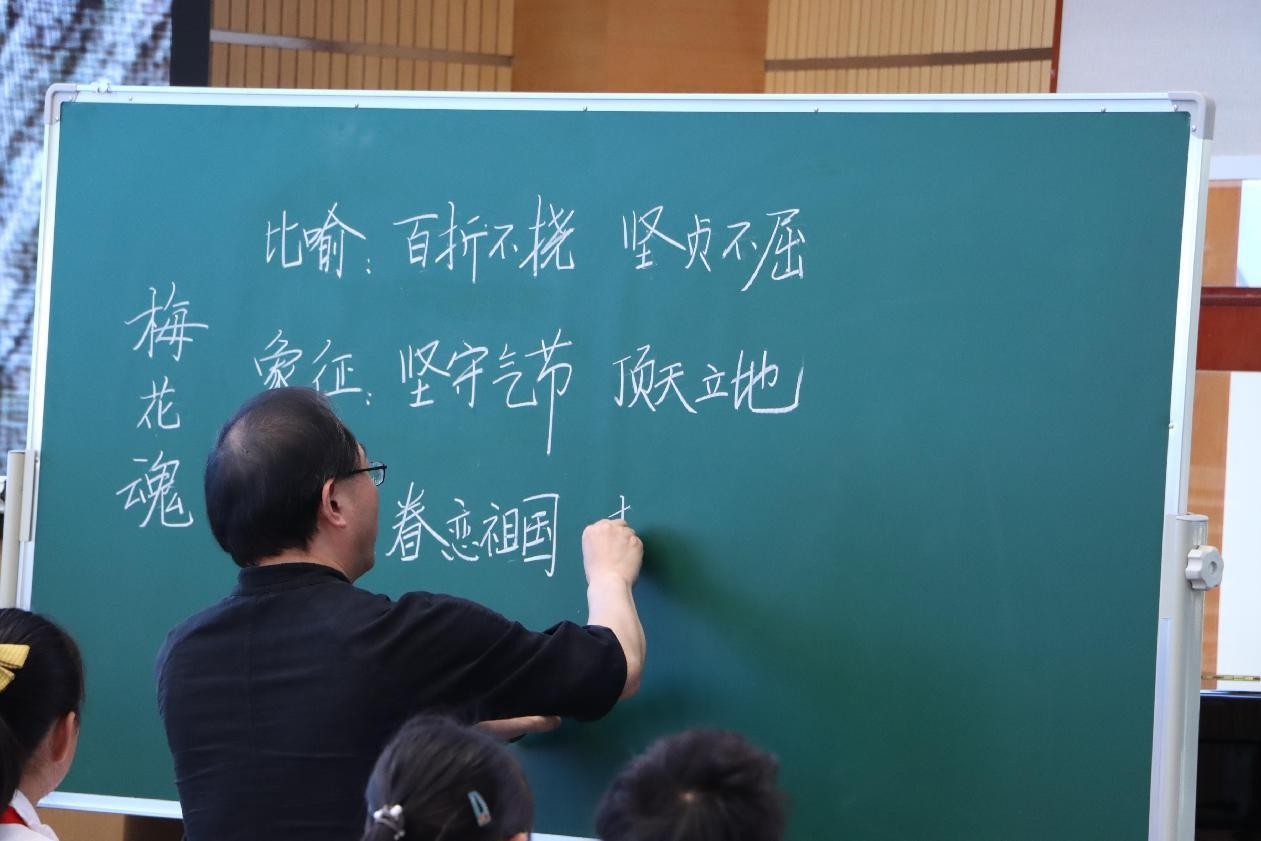 梅花魂
比喻：百折不挠 坚贞不屈
象征：坚守气节 顶天立地
眷恋祖国